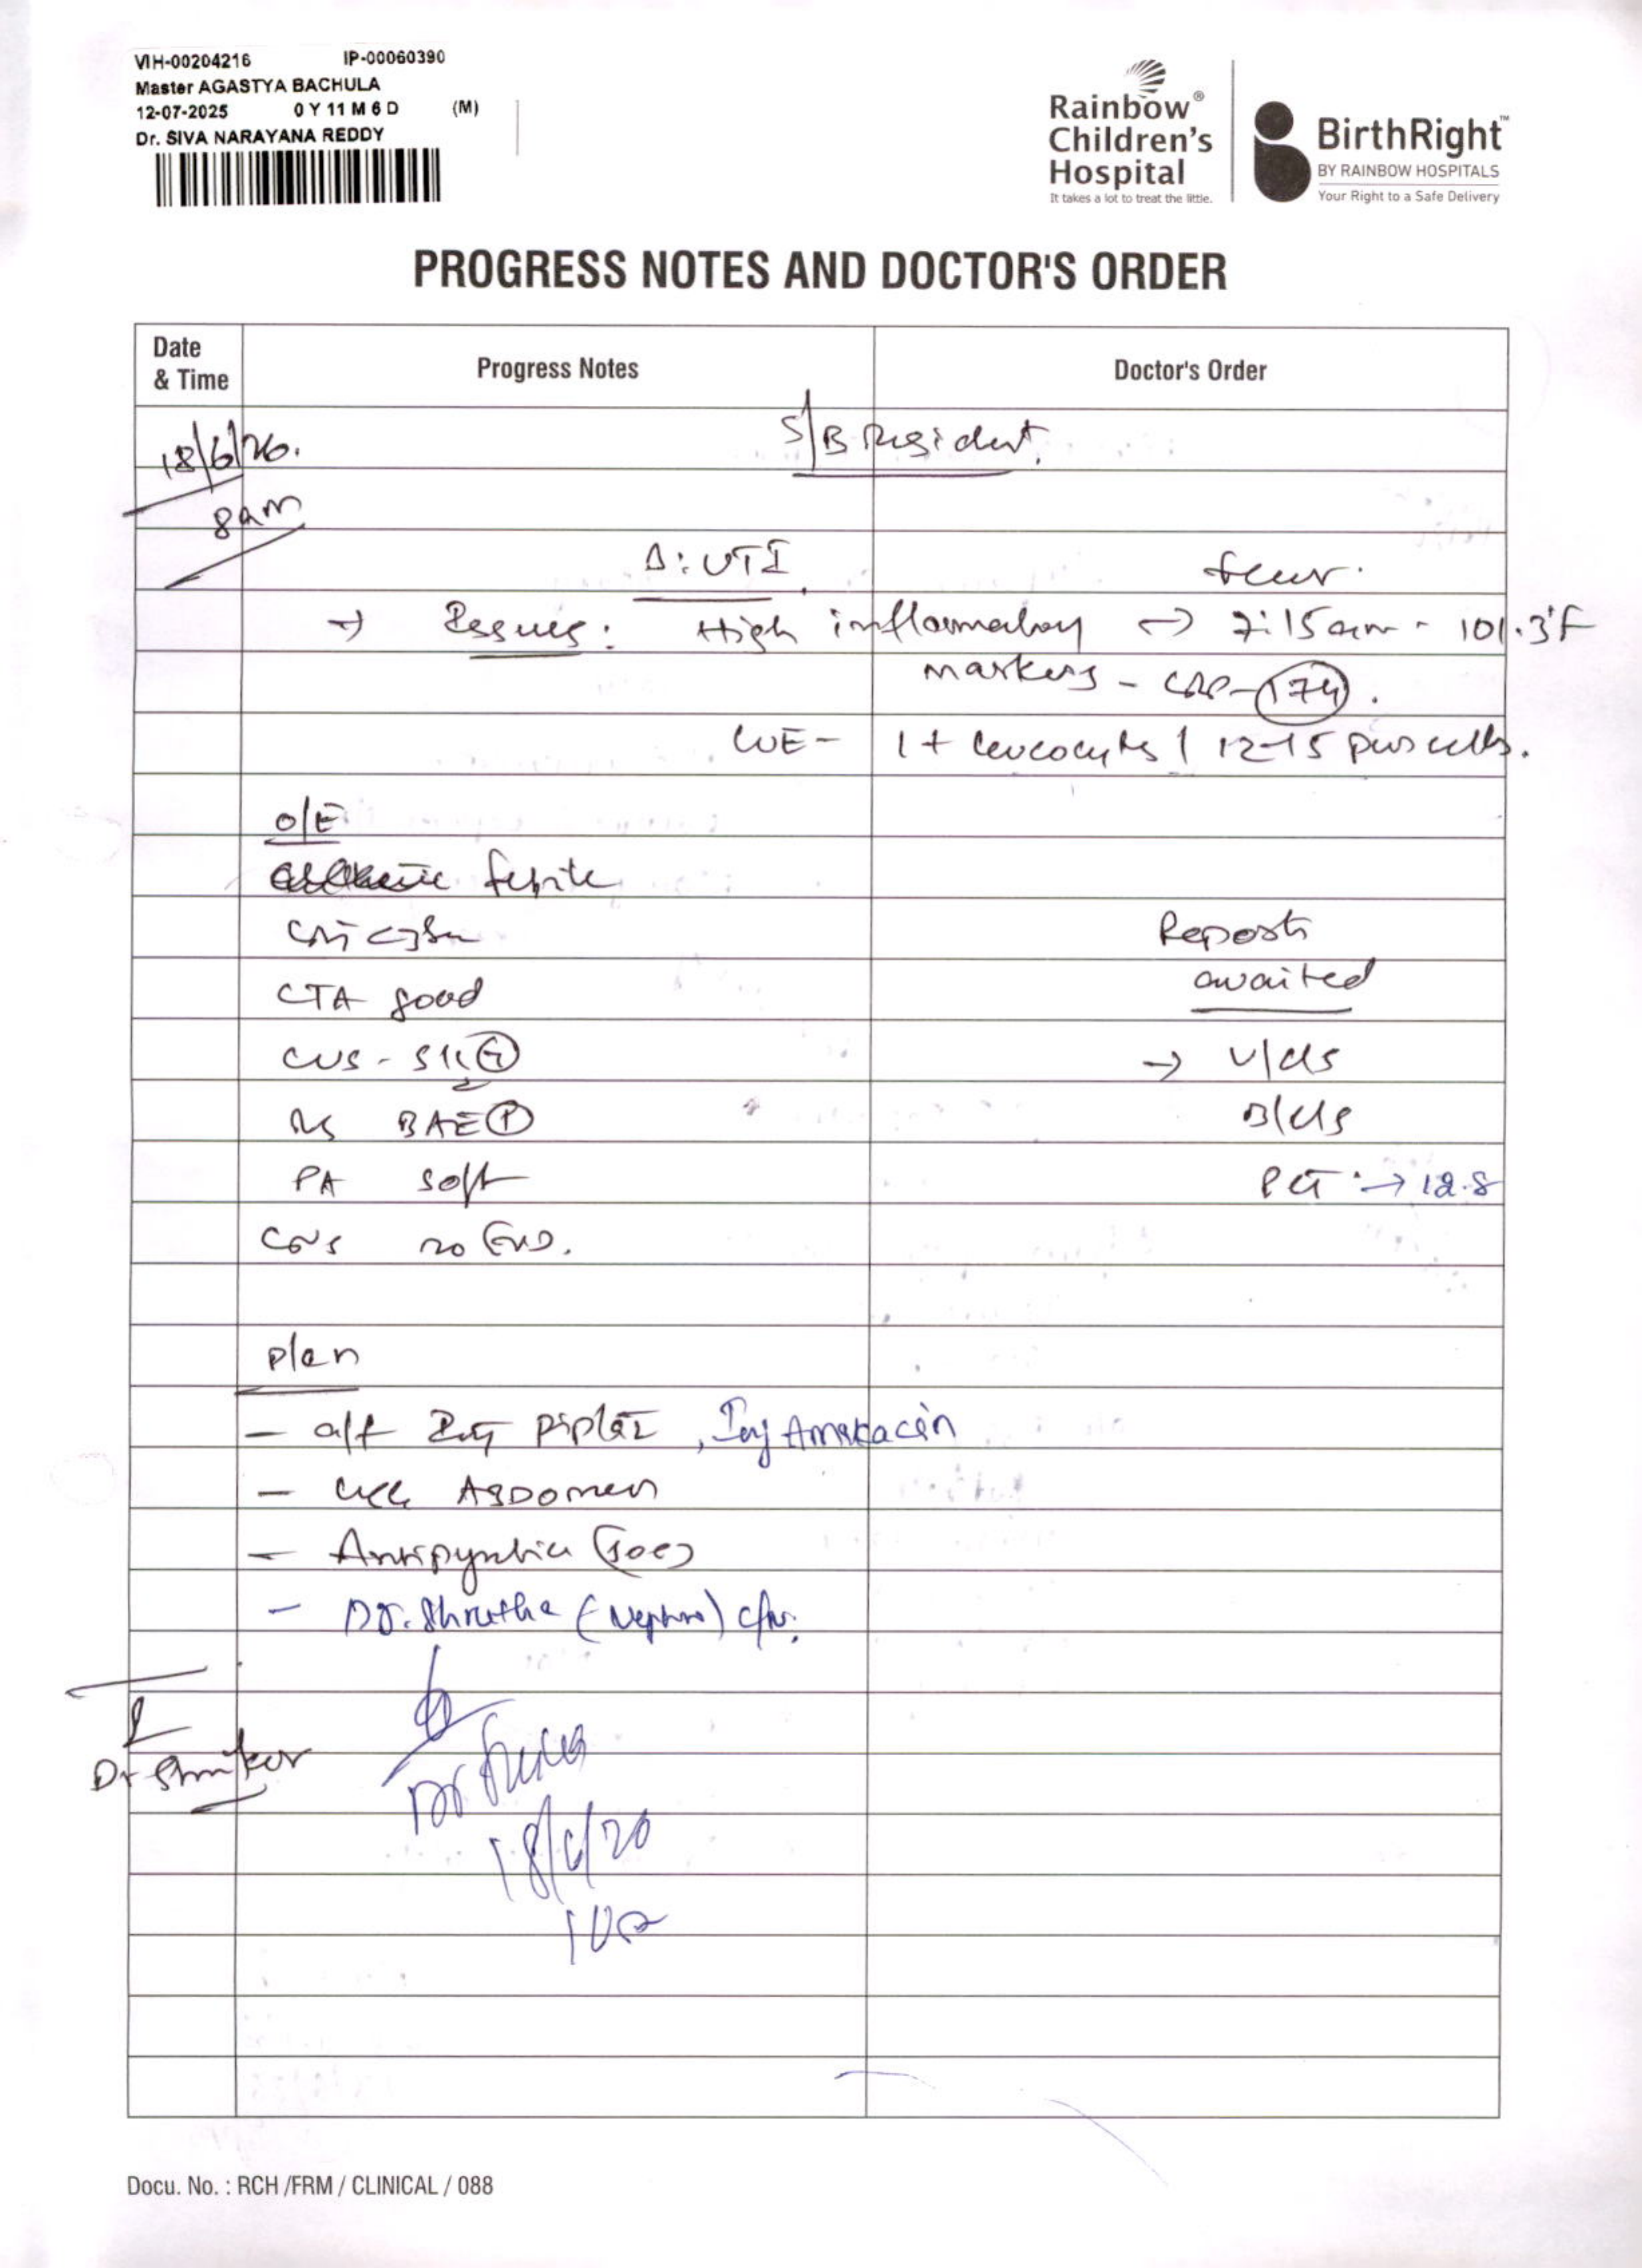 VIH-00204216 IP-00060390
Master AGASTYA BACHULA
12-07-2025 0 Y 11 M 6 D (M)
Dr. SIVA NARAYANA REDDY
Rainbow®
Children's
Hospital
It takes a lot to treat the little.
BirthRight™
BY RAINBOW HOSPITALS
Your Right to a Safe Delivery
PROGRESS NOTES AND DOCTOR'S ORDER
Date & Time Progress Notes Doctor's Order
18/6/26. S/B Resident.
8am
Δ: UTI fever.
→ Issues: High inflammatory → 7:15am - 101.3°F
markers - CRP - 174.
CUE - 1+ leucocytes / 12-15 pus cells.
O/E
febrile
Reports
CTA good awaited
CVS - S1S2 → U/C/S
RS BAE P B/C/S
PA soft PCT → 12.8
CNS no FND.
Plan
- Inj Piptaz, Inj Amikacin
- Abdomen
- Antipyretics (SOS)
- Dr. Shrutha (Nephro)
Dr
Dr
18/6/26
Docu. No. : RCH /FRM / CLINICAL / 088